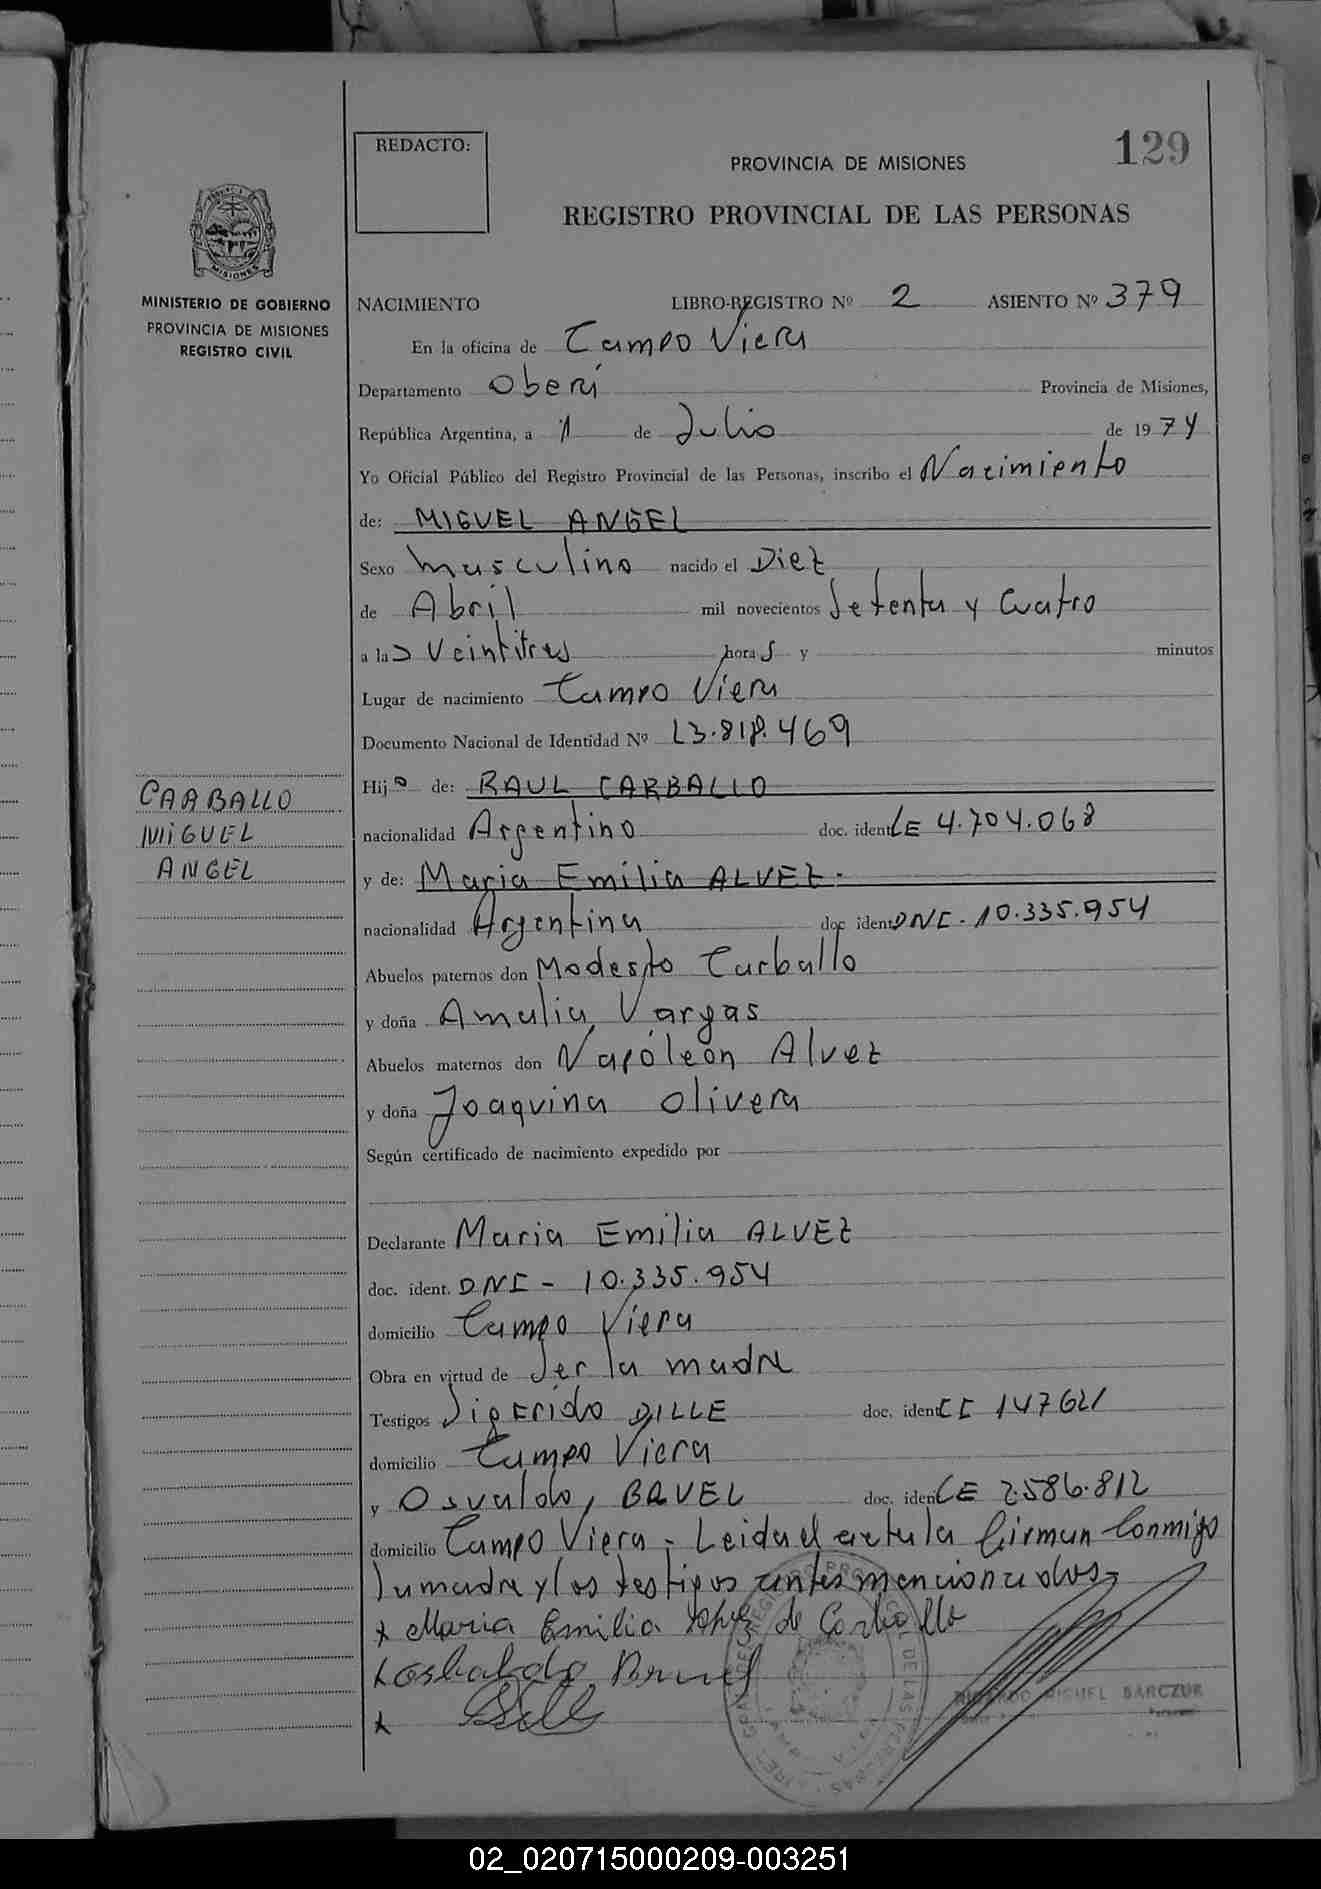 129
REDACTO:
PROVINCIA DE MISIONES
REGISTRO PROVINCIAL DE LAS PERSONAS
MISIONES
MINISTERIO DE GOBIERNO
PROVINCIA DE MISIONES
REGISTRO CIVIL
NACIMIENTO LIBRO-REGISTRO Nº 2 ASIENTO Nº 379
En la oficina de Campo Viera
Departamento Oberá Provincia de Misiones,
República Argentina, a 1 de Julio de 1974
Yo Oficial Público del Registro Provincial de las Personas, inscribo el Nacimiento
de: MIGUEL ANGEL
Sexo Masculino nacido el Diez
de Abril mil novecientos Setenta y Cuatro
a las Veintitres horas y minutos
Lugar de nacimiento Campo Viera
Documento Nacional de Identidad Nº 23.818.469
Hijo de: RAUL CARBALLO
CARBALLO
MIGUEL
ANGEL
nacionalidad Argentino doc. ident. LE 4.704.068
y de: Maria Emilia ALVEZ.
nacionalidad Argentina doc. ident. DNI - 10.335.954
Abuelos paternos don Modesto Carballo
y doña Amalia Vargas
Abuelos maternos don Napoleón Alvez
y doña Joaquina Olivera
Según certificado de nacimiento expedido por
Declarante Maria Emilia ALVEZ
doc. ident. DNI - 10.335.954
domicilio Campo Viera
Obra en virtud de Ser la madre
Testigos Sigfrido DILLE doc. ident. CI 147621
domicilio Campo Viera
y Osvaldo, BRUEL doc. ident. LE 2.586.812
domicilio Campo Viera - Leida el acta la firman Conmigo
la madre y los testigos antes mencionados
x Maria Emilia de Carballo
x Osbaldo Bruel
x Dille
RICARDO MIGUEL BARCZUK
02_020715000209-003251